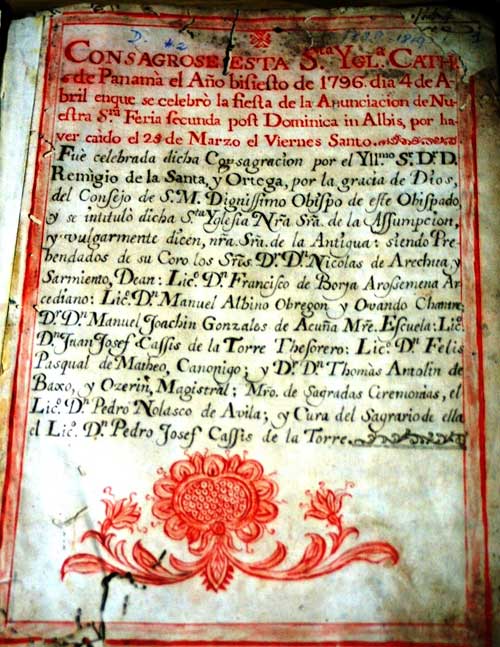 D. #2
CONSAGROSE ESTA S.ta YGL.a CATH.
de Panamà el Año bisiesto de 1796. dia 4 de A-
bril enque se celebrò la fiesta de la Anunciacion de Nu-
estra S.ra Feria secunda post Dominica in Albis, por ha-
ver caido el 25 de Marzo el Viernes Santo.
Fuè celebrada dicha Consagracion por el Yll.mo S.r D.r D.
Remigio de la Santa, y Ortega, por la gracia de Dios,
del Consejo de S. M. Dignissimo Obispo de este Obispado,
y se intitulò dicha S.ta Yglesia Nrã. Srã. de la Assumpcion,
y vulgarmente dicen, nrã. Srã. de la Antigua: siendo Pre-
bendados de su Coro los Srẽs. D.r D.n Nicolas de Arechua, y
Sarmiento, Dean: Lic.o D.n Francisco de Borja Arosemena Ar-
cediano: Lic.o D.n Manuel Albino Obregon y Ovando Chantre
D.r D.n Manuel Joachin Gonzalos de Acuña Mrẽ. Escuela: Lic.o
D.n Juan Josef Cassis de la Torre Thesorero: Lic.o D.n Felis
Pasqual de Matheo, Canonigo; y D.r D.n Thomàs Antolin de
Baxo, y Ozerin, Magistral; Mrõ. de Sagradas Ceremonias, el
Lic.o D.n Pedro Nolasco de Avila; y Cura del Sagrario de ella
el Lic.o D.n Pedro Josef Cassis de la Torre.